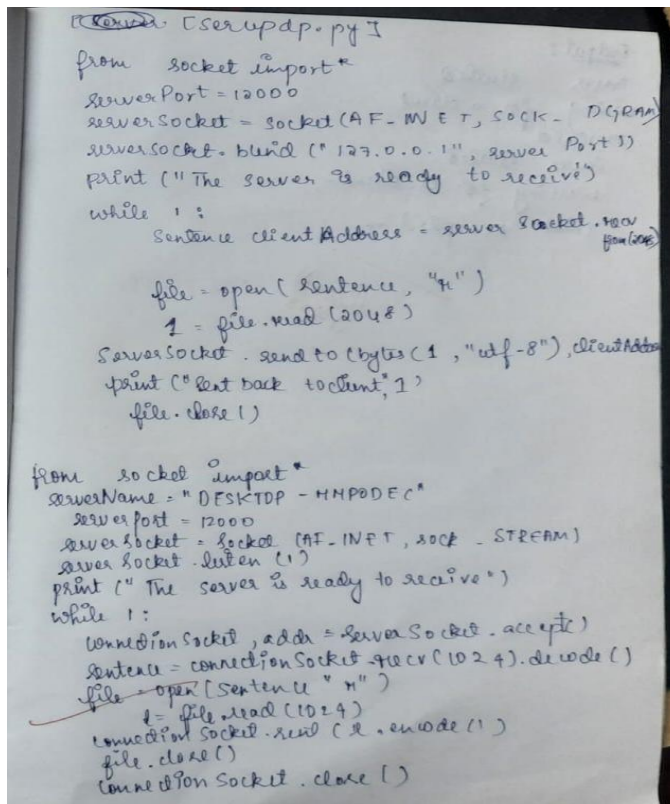 [serupdp.py]
from socket import*
serverPort = 12000
serverSocket = socket(AF-INET, SOCK- DGRAM)
serversocket. bind ("127.0.0.1", server Port))
print ("The server is ready to receive")
while 1 :
Sentence client Address = server Socket.recv
from(2048)
file = open( sentence, "r")
1 = file.read (2048)
ServerSocket . send to (bytes ( 1 , "utf-8"), clientAddre
print ("Sent back toclient", 1)
file.close ()
from socket import*
serverName = "DESKTOP - HMPODEC"
serverport = 12000
serversocket = Socket (AF-INET, sock - STREAM)
server Socket . listen (1)
print (" The server is ready to receive ")
while 1 :
connectionSocket , addr = serverSocket . accept()
sentence = connectionSocket .recv (1024).decode ()
file = open (sentence "r")
l = file.read (1024)
connection Socket.send (l . encode ()
file. close ()
connection Socket. close ()